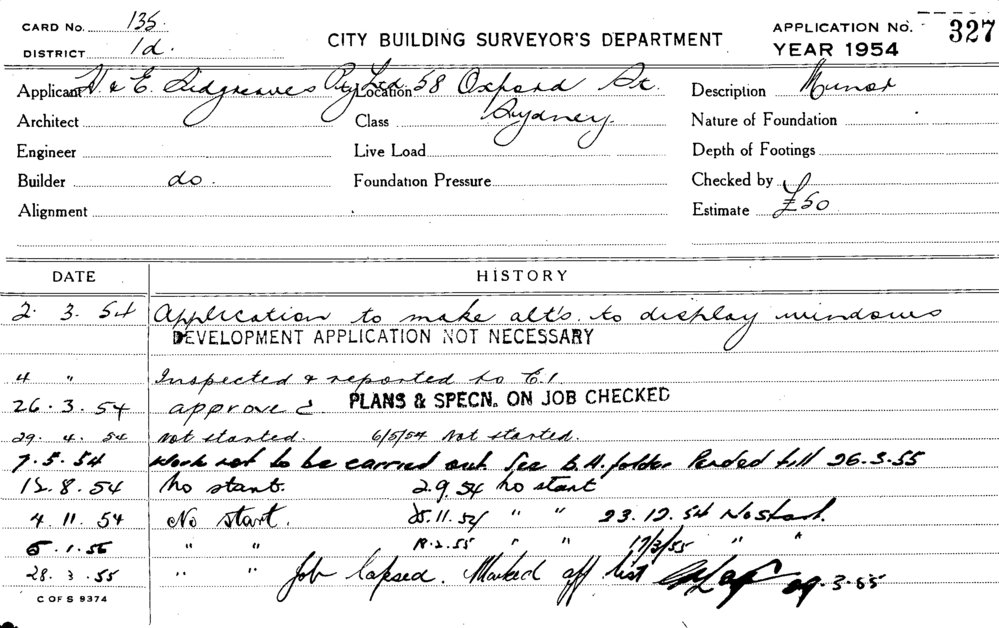 CARD No. 135. CITY BUILDING SURVEYOR'S DEPARTMENT APPLICATION No. 327
DISTRICT 1d. YEAR 1954
Applicant H. & E. Sidgreaves Pty Ltd Location 58 Oxford St. Description Minor
Architect Class Sydney. Nature of Foundation
Engineer Live Load Depth of Footings
Builder do. Foundation Pressure Checked by
Alignment Estimate £50
DATE HISTORY
2. 3. 54 Application to make alt's. to display windows
DEVELOPMENT APPLICATION NOT NECESSARY
4 " Inspected & reported to C.I.
26.3.54 approve PLANS & SPECN. ON JOB CHECKED
29. 4. 54 Not started. 6/5/54 Not started.
7.5.54 Work not to be carried out. See B.H. folder Pended till 26.3.55
12.8.54 No start. 2.9.54 No start
4.11.54 No start. 25.11.54 " " 23.12.54 No start.
5.1.55 " " 18.2.55 " " 17/3/55 " "
28.3.55 " " Job lapsed. Marked off list 29.3.55
C OF S 9374